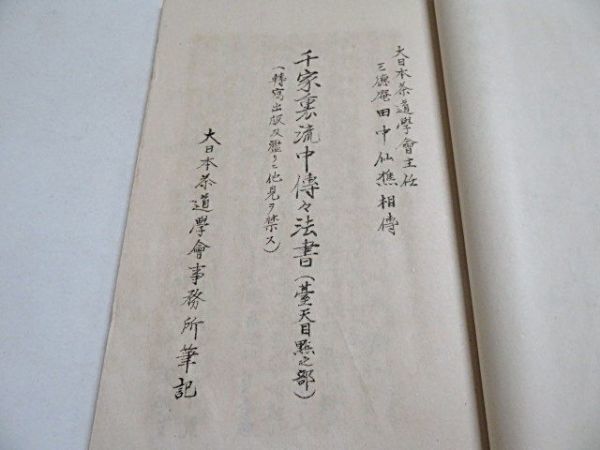 大日本茶道學會主任
三德庵田中仙樵相傳
千家裏流中傳々法書（臺天目點之部）
（轉寫出版及濫リニ他見ヲ禁ス）
大日本茶道學會事務所筆記